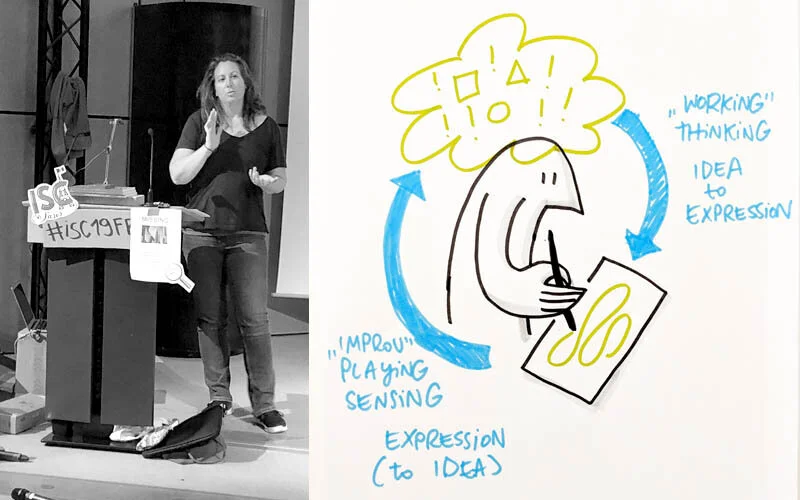 ISC
#ISC19FR
MISSING
„WORKING"
THINKING
IDEA
to
EXPRESSION
„IMPROV"
PLAYING
SENSING
EXPRESSION
(to IDEA)